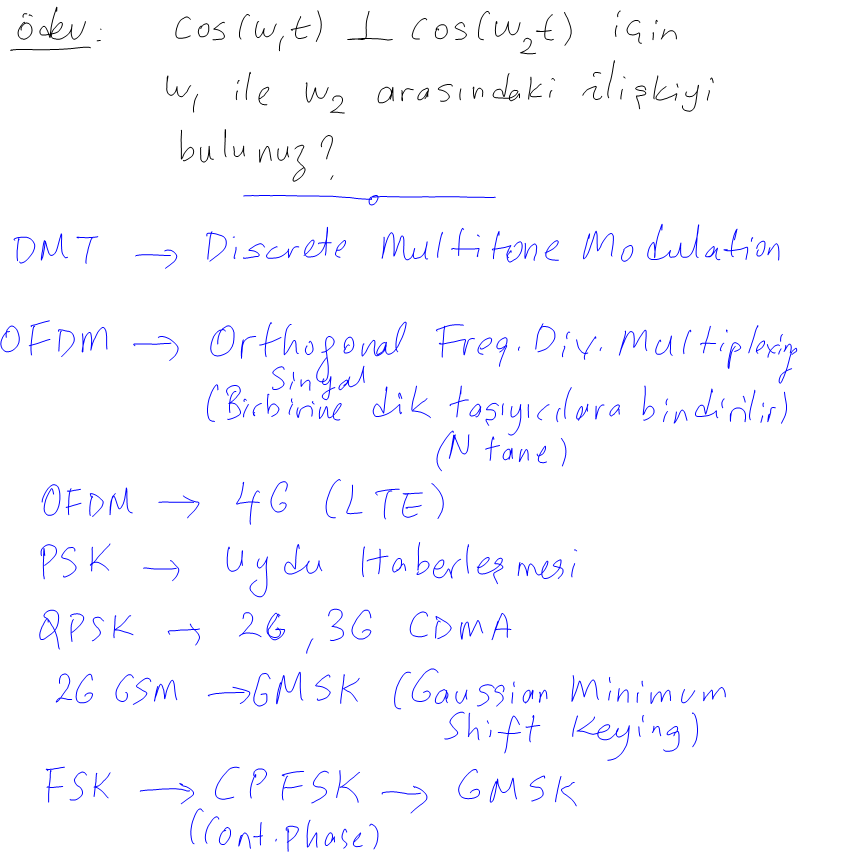 ödev: cos(w₁t) ⊥ cos(w₂t) için
w₁ ile w₂ arasındaki ilişkiyi
bulunuz?
DMT → Discrete Multitone Modulation
OFDM → Orthogonal Freq. Div. Multiplexing
Sinyal
(Birbirine dik taşıyıcılara bindirilir)
(N tane)
OFDM → 4G (LTE)
PSK → Uydu Haberleşmesi
QPSK → 2G, 3G CDMA
2G GSM → GMSK (Gaussian Minimum
Shift Keying)
FSK → CPFSK → GMSK
(Cont. phase)